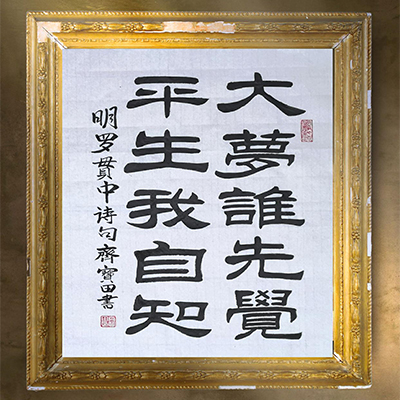 大夢誰先覺
平生我自知
明罗贯中诗句齊寶田書